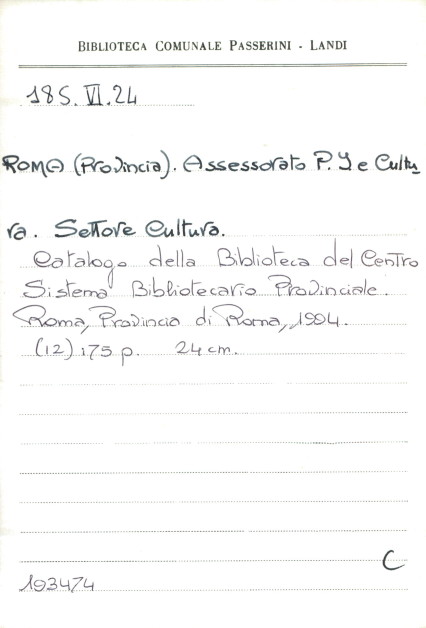 BIBLIOTECA COMUNALE PASSERINI - LANDI
18S.VI.24
ROMA (Provincia). Assessorato P. I e Cultu
ra. Settore Cultura.
Catalogo della Biblioteca del Centro
Sistema Bibliotecario Provinciale.
Roma, Provincia di Roma, 1994.
(12) 175 p. 24 cm.
C
193474